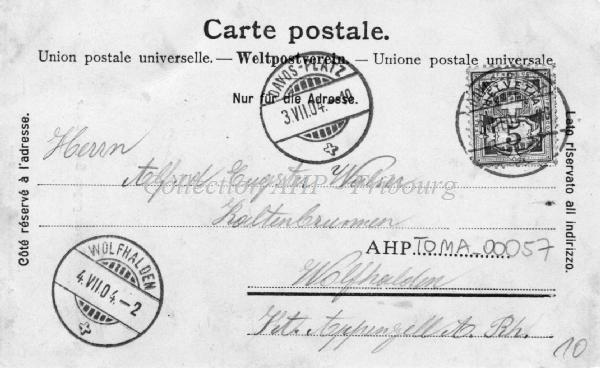 Carte postale.
Union postale universelle. — Weltpostverein. — Unione postale universale
Nur für die Adresse.
DAVOS-PLATZ
3.VII.04. 10
HELVETIA
5
Côté réservé à l'adresse.
Lato riservato all indirizzo.
Herrn
Alfred Eugster
Collection AHP Fribourg
Kaltenbrunnen
AHP TOMA 00057
Wolfhalden
Kt. Appenzell A. Rh.
WOLFHALDEN
4.VII.04.–2
10